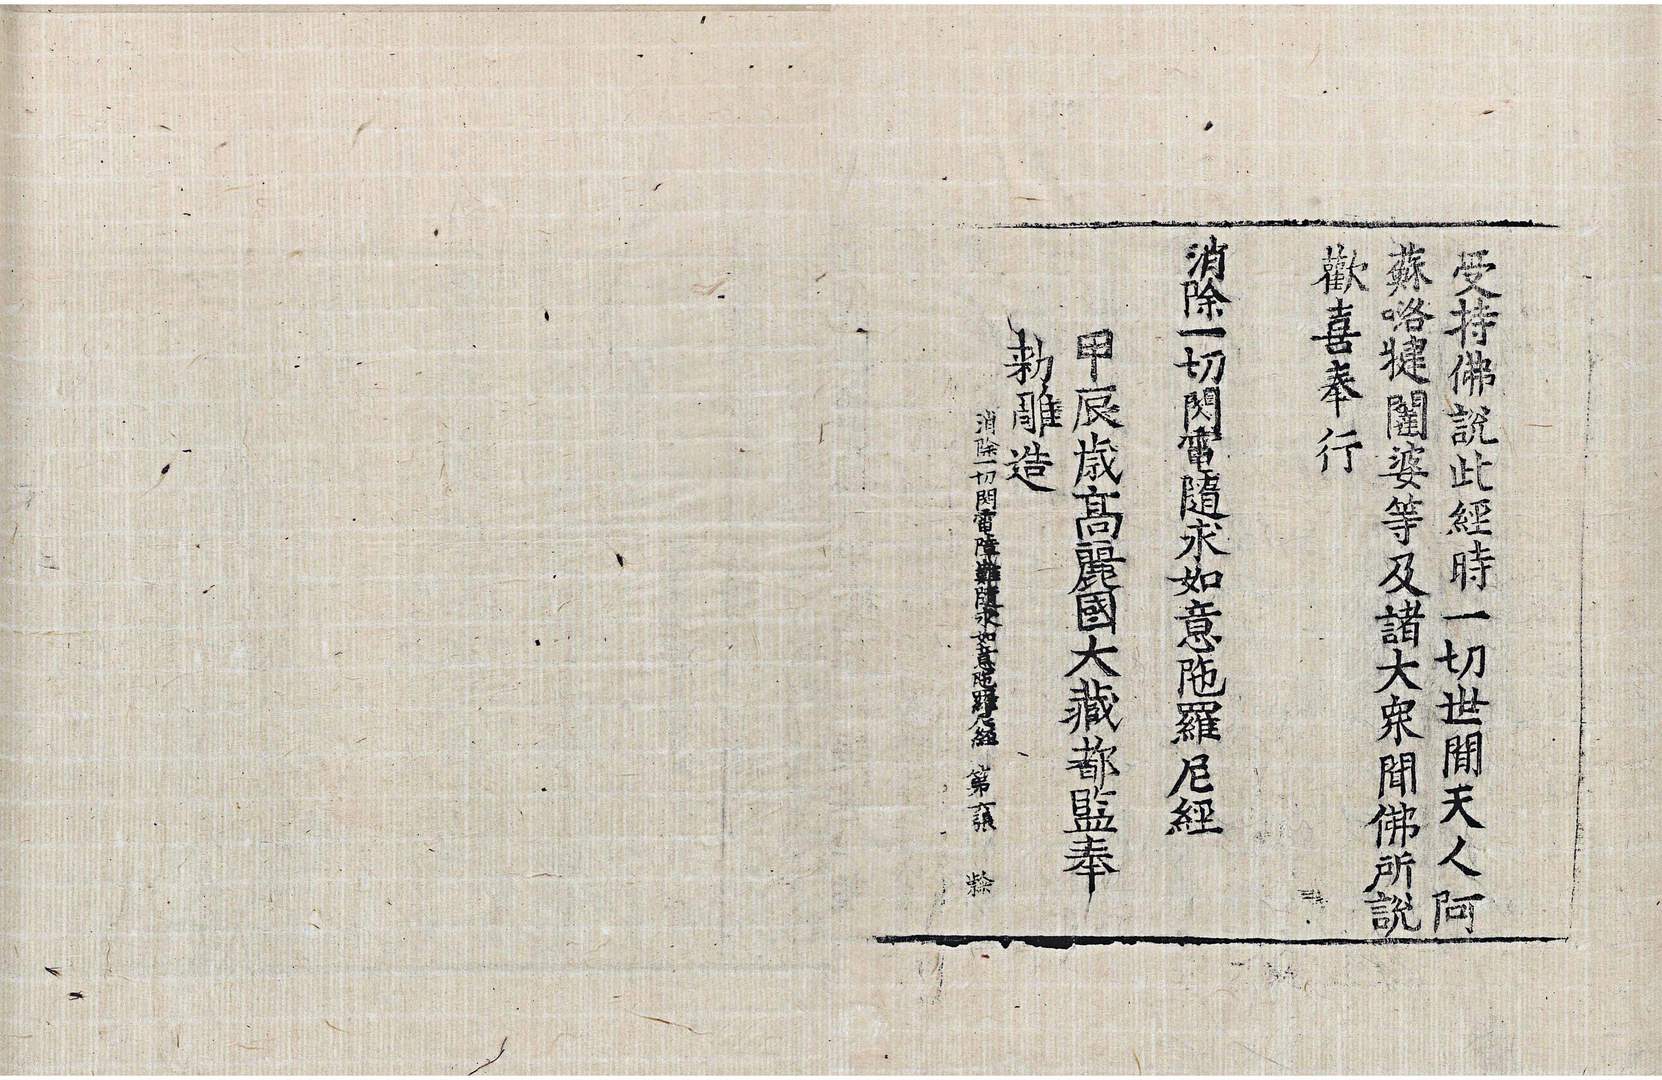 受持佛說此經時一切世間天人阿
蘇咯揵闥婆等及諸大衆聞佛所說
歡喜奉行
消除一切閃電隨求如意陁羅尼經
甲辰歲高麗國大藏都監奉
勅雕造
消除一切閃電障難隨求如意陁羅尼經 第 張